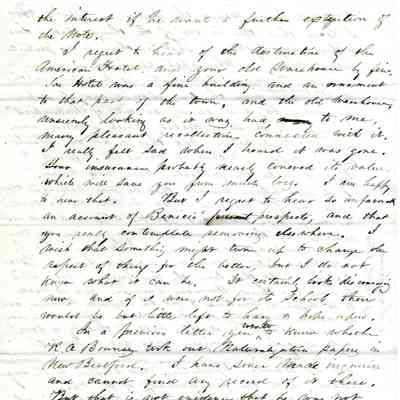 the interest if he want a further extention of
the Note.
I regret to hear of the destruction of the
American Hotel, and your old Warehouse by fire.
The Hotel was a fine building and an ornament
to that part of the town, and the old warehouse,
looking as it was, had to me,
many pleasant recollections connected with it.
I really felt sad when I heard it was gone.
Your insurance probably nearly covered its value
which will save you from much loss. I am happy
to hear that. But I regret to hear so
an account of prospects, and that
you really contemplate removing elsewhere. I
wish that something might turn up to change the
aspect of things for the better, but I do not
know what it can be. It certainly looks discouraging
now, and if it were not for its School, there
would be but little left to hang a hope upon.
In a previous letter you wanted to know whether
R. A. took out Naturalization papers in
New Bedford. I have since made inquiries
and cannot find any record of it there.
But that is not evidence that he was not